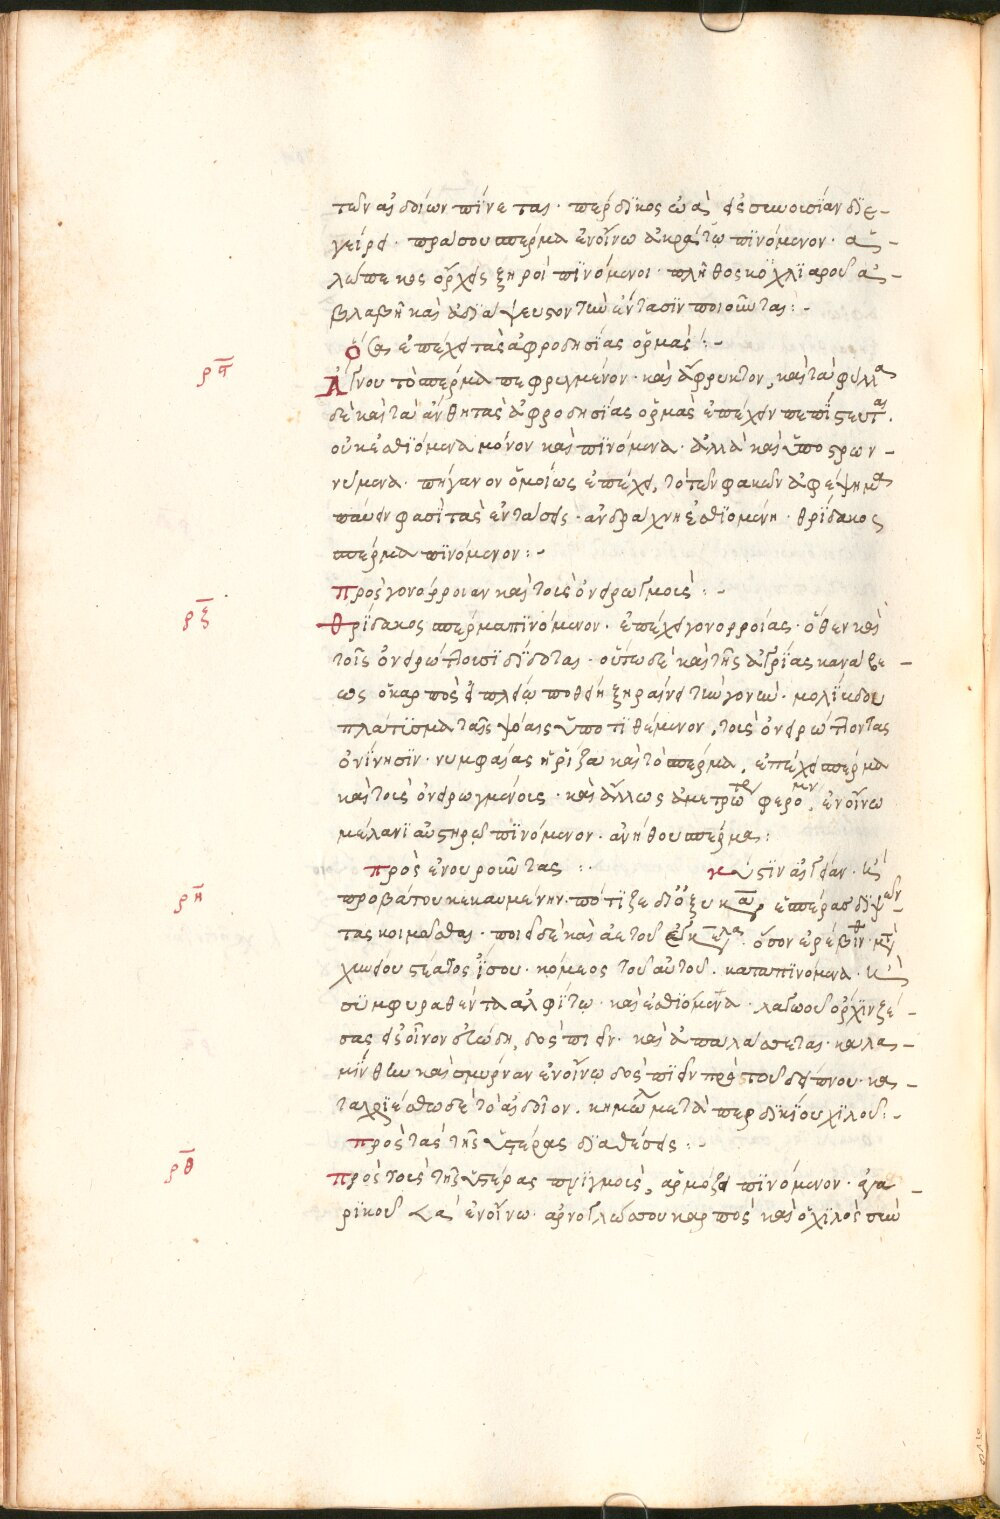 τῶν αἰδοίων πίνεται· πέρδικος ὠὰ εἰς συνουσίαν διε-
γείρει· πράσου σπέρμα ἐν οἴνω ἀκράτω πϊνόμενον· ἀ-
λώπεκος ὄρχεις ξηροὶ πϊνόμενοι· πλῆθος κοχλϊαρου ἀ-
βλαβῆ καὶ ἀδϊάψευστον τὴν ἔντασϊν ποιοῦνται:-
ὅσα ἐπέχει τὰς ἀφροδησίας ὁρμάς:-
ρπ Ἄγνου τὸ σπέρμα πεφρυγμένον· καὶ ἄφρυκτον, καὶ τὰ φύλλα
δὲ καὶ τὰ ἄνθη τὰς ἀφροδησίας ὁρμὰς ἐπέχειν πεπίστευται.
οὐκ ἐσθϊόμενα μόνον καὶ πϊνόμενα· ἀλλὰ καὶ ὑποστρων-
νύμενα· πήγανον ὁμοίως ἐπέχει, τὸ τῶν φακῶν ἀφέψημα
παύειν φασὶ τὰς ἐντάσεις· ἀνδράχνη ἐσθϊομένη· θρίδακος
σπέρμα πϊνόμενον:-
πρὸς γονόρροιαν καὶ τοὺς ὀνειρωγμούς:-
ρξ θρίδακος σπέρμα πϊνόμενον· ἐπέχει γονορροίας· ὅθεν καὶ
τοῖς ὀνειρώττουσϊ δίδοται· οὕτω δὲ καὶ τῆς ἀγρίας καννάβε-
ως ὁ καρπὸς εἰ πλείω ποθείη ξηραίνει τὴν γονὴν· μολίβδου
πλάτϋσμα ταῖς ψόαις ὑποτϊθέμενον, τοὺς ὀνειρώττοντας
ὀνίνησϊν· νυμφαίας ἡ ῥίζα καὶ τὸ σπέρμα, ἐπέχει σπέρμα
καὶ τοὺς ὀνειρωγμένοις· καὶ ἄλλως ἀμέτρως φερόμεν, ἐν οἴνω
μέλανϊ αὐστηρῶ πϊνόμενον· ἀνήθου σπέρμα:
πρὸς ἐνουροῦντας :· κύστϊν αἰγείαν· καὶ
ρη προβάτου κεκαυμένην· πότϊζε δι' ὀξυκρά ἑσπέρας διψῶν-
τας κοιμᾶσθαι· ποιεῖ δὲ καὶ ἀετοῦ ὅσον ἐρέβϊνθ
χηνείου στέατος ἴσου· κόμεος τοῦ αὐτοῦ. καταπϊνόμενα· καὶ
συμφυραθέντα ἀλφίτω· καὶ ἐσθϊόμενα· λαγωοῦ ὄρχϊν ξέ-
σας εἰς οἶνον εὐώδη, δὸς πιεῖν· καὶ ἀπαλάσσεται· καλα-
μίνθην καὶ σμύρναν ἐν οἴνω δὸς πϊεῖν πρὸ τοῦ δείπνου· κα-
ταχρϊέσθω δὲ τὸ αἰδοῖον. κημωλ μετὰ περδϊκίου χϋλοῦ:-
πρὸς τὰς τῆς ὑστέρας δϊαθέσεις:-
ρθ πρὸς τοὺς τῆς ὑστέρας πνϊγμούς, ἁρμόζει πϊνόμενον· ἀγα-
ρικοῦ < α ἐν οἴνω· ἀρνογλώσσου καρπὸς καὶ ὁ χϋλὸς σὺν